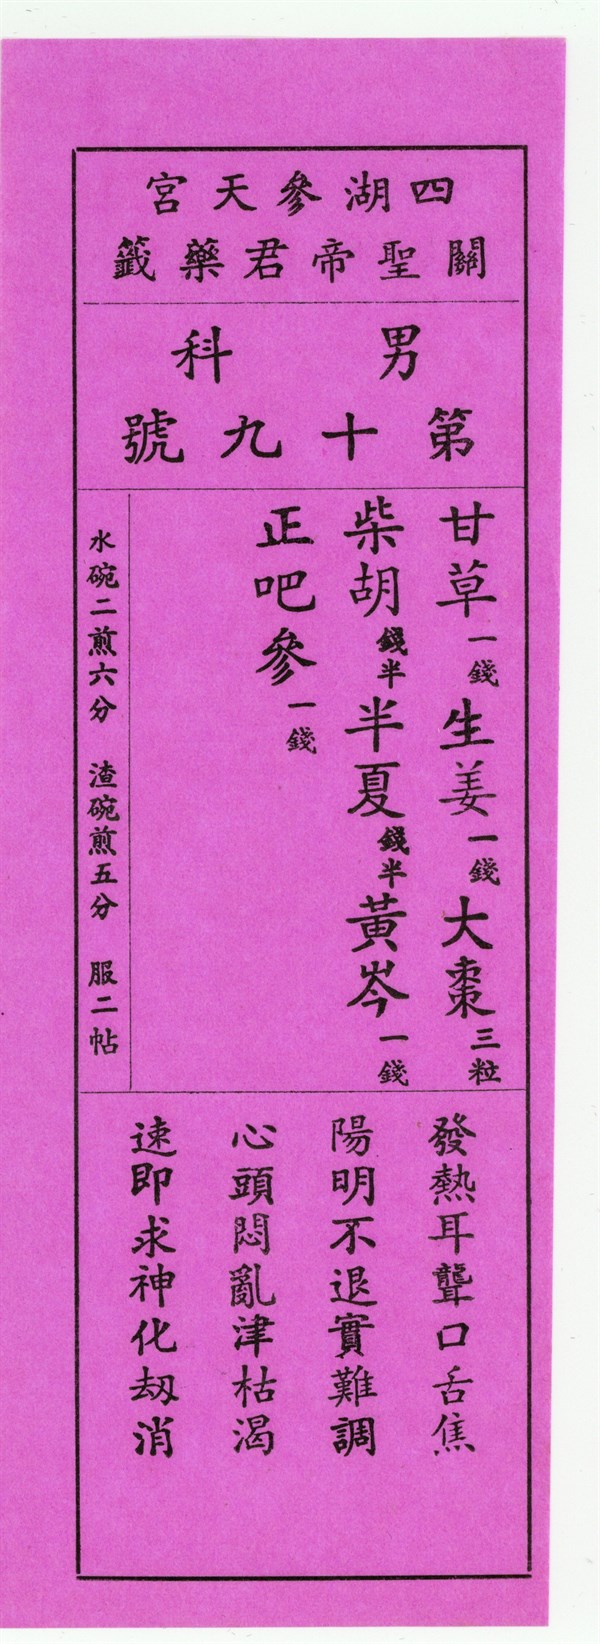 四湖參天宮
關聖帝君藥籤
男科
第十九號
甘草一錢生姜一錢大棗三粒
柴胡錢半半夏錢半黃岑一錢
正吧參一錢
水碗二煎六分 渣碗煎五分 服二帖
發熱耳聾口舌焦
陽明不退實難調
心頭悶亂津枯渴
速即求神化劫消